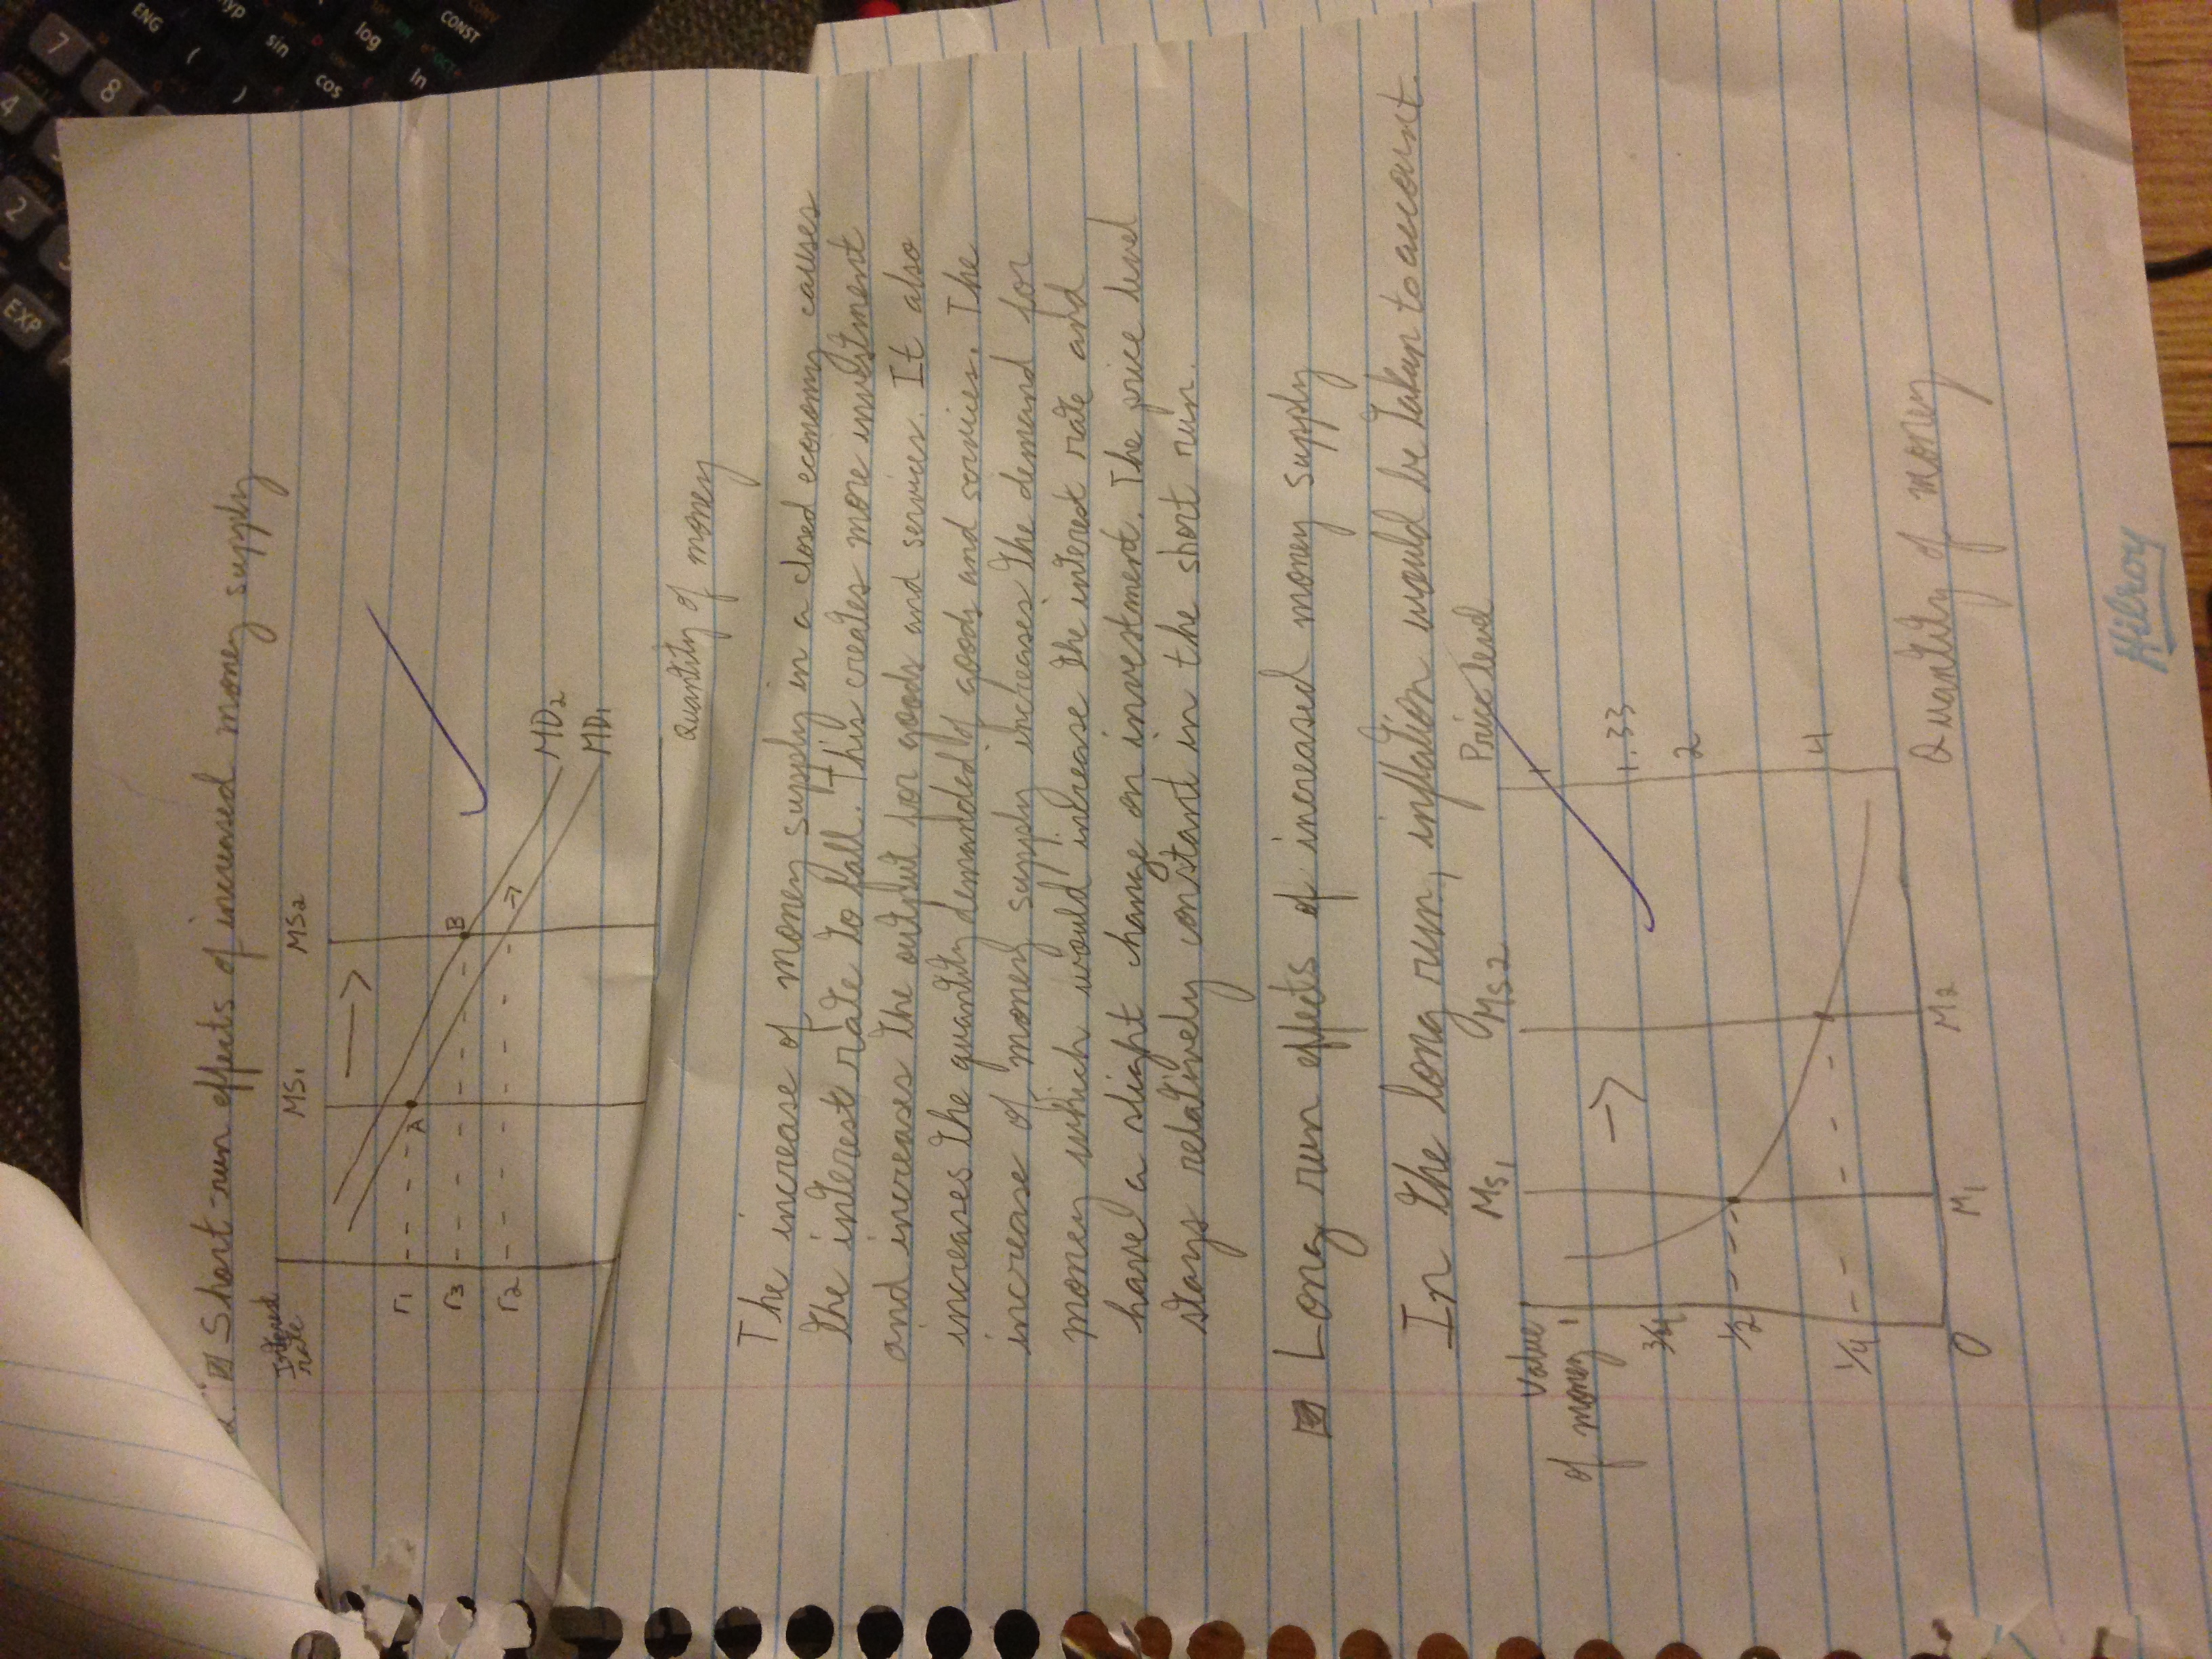 2. Short-run effects of increased money supply
Interest
rate
MS₁
MS₂
r₁
r₃
r₂
A
B
MD₂
MD₁
Quantity of money
The increase of money supply in a closed economy causes
the interest rate to fall. This creates more investment
and increases the output for goods and services. It also
increases the quantity demanded of goods and services. The
increase of money supply increases the demand for
money which would increase the interest rate and
have a slight change on investment. The price level
stays relatively constant in the short run.
Long run effects of increased money supply
In the long run, inflation would be taken to account.
Value
of money
MS₁
MS2
Price level
1
3/4
1/2
1/4
0
1
1.33
2
4
M₁
M₂
Quantity of money
Hilroy
7
8
4
2
EXP
ENG
hyp
(
)
sin
cos
log
ln
CONST